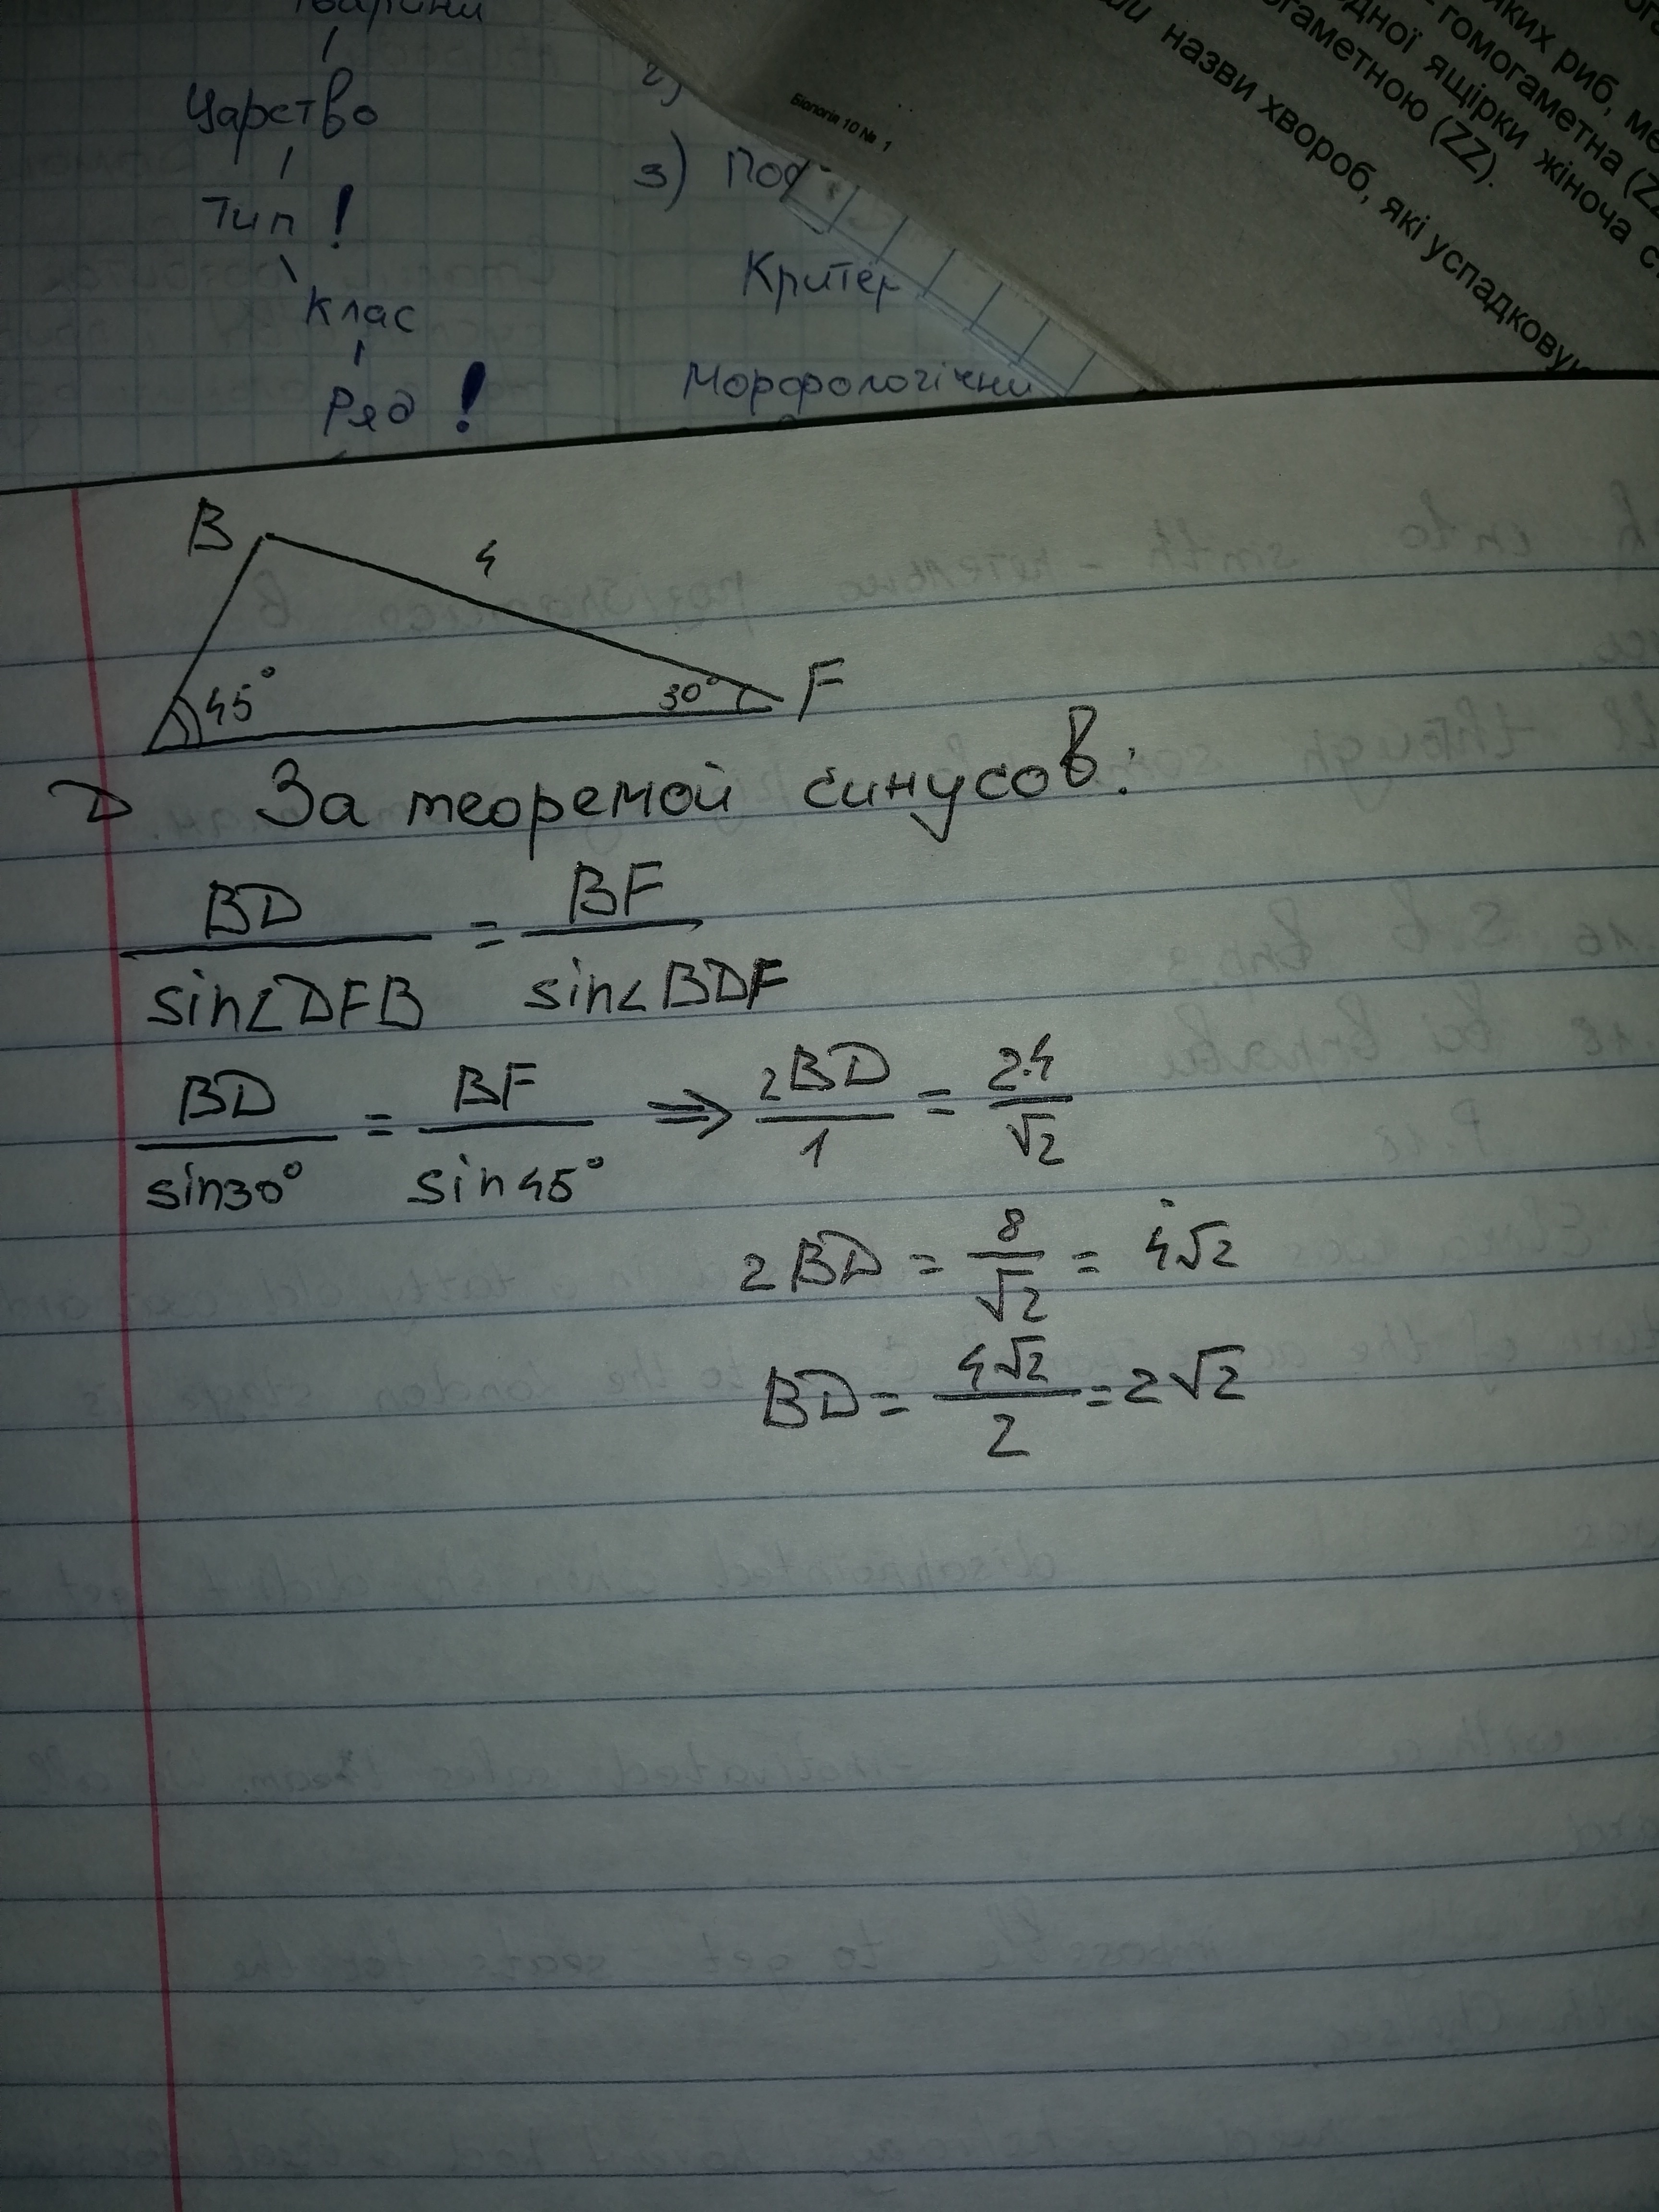 Царство
Тип !
Клас
Ряд !
3) Под
Критер
Морфологічни
Біологія 10 № 1
яких риб, ме
гомогаметна (Z
дної ящірки жіноча с
гаметною (ZZ).
назви хвороб, які успадкову
B
4
45°
30°
F
D
За теоремой синусов:
BD/sin∠DFB = BF/sin∠BDF
BD/sin30° = BF/sin45° => 2BD/1 = 2·4/√2
2BD = 8/√2 = 4√2
BD = 4√2/2 = 2√2